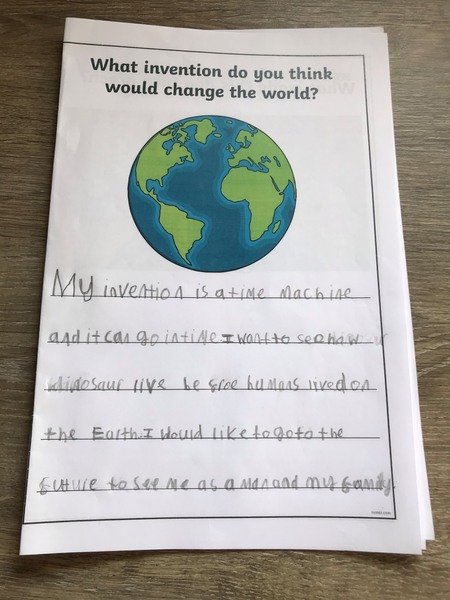 What invention do you think
would change the world?
My invention is a time machine
and it can go in time I want to see how
dinosaur live be froe humans lived on
the Earth. I would like to go to the
future to see me as a man and my family